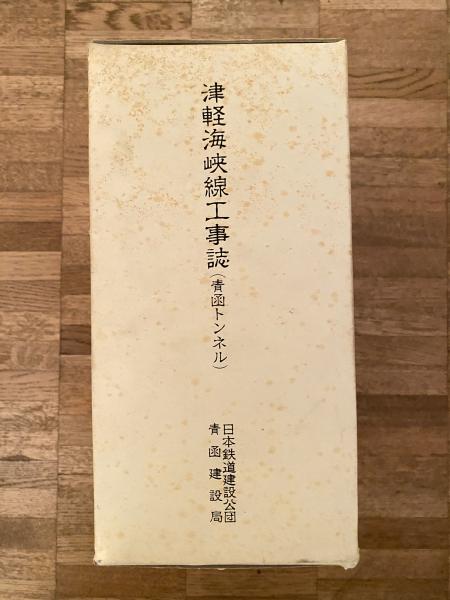 津軽海峡線工事誌(青函トンネル)
日本鉄道建設公団
青函建設局